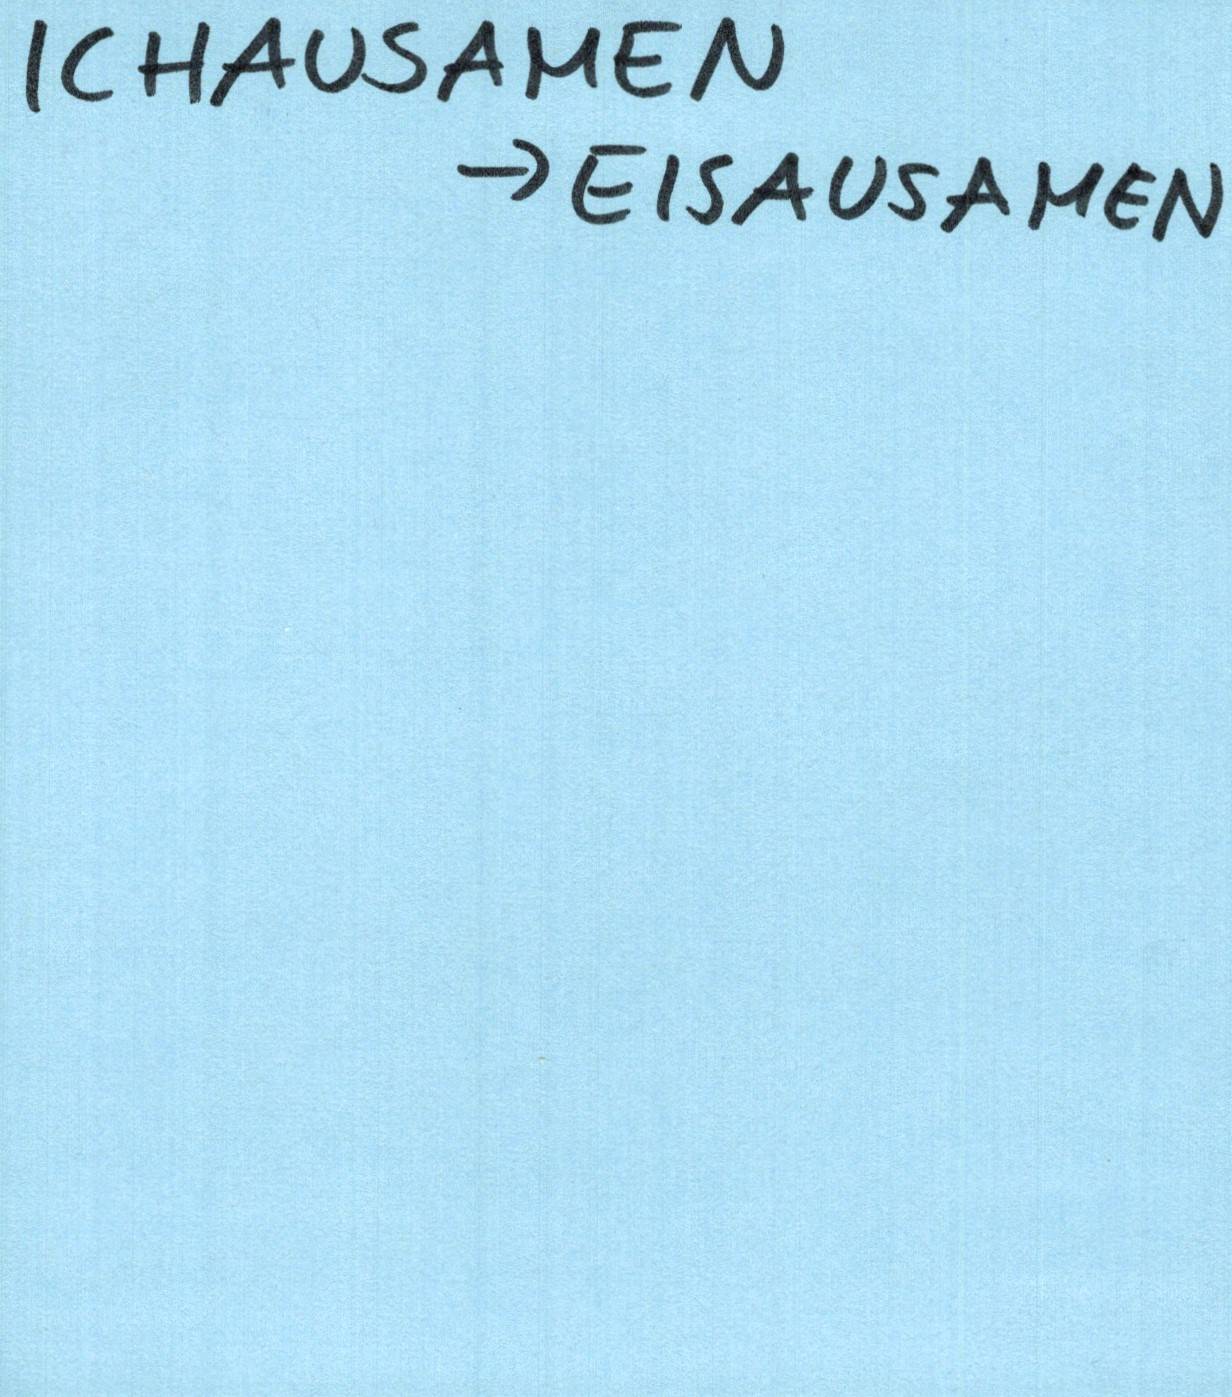 ICHAUSAMEN
→EISAUSAMEN